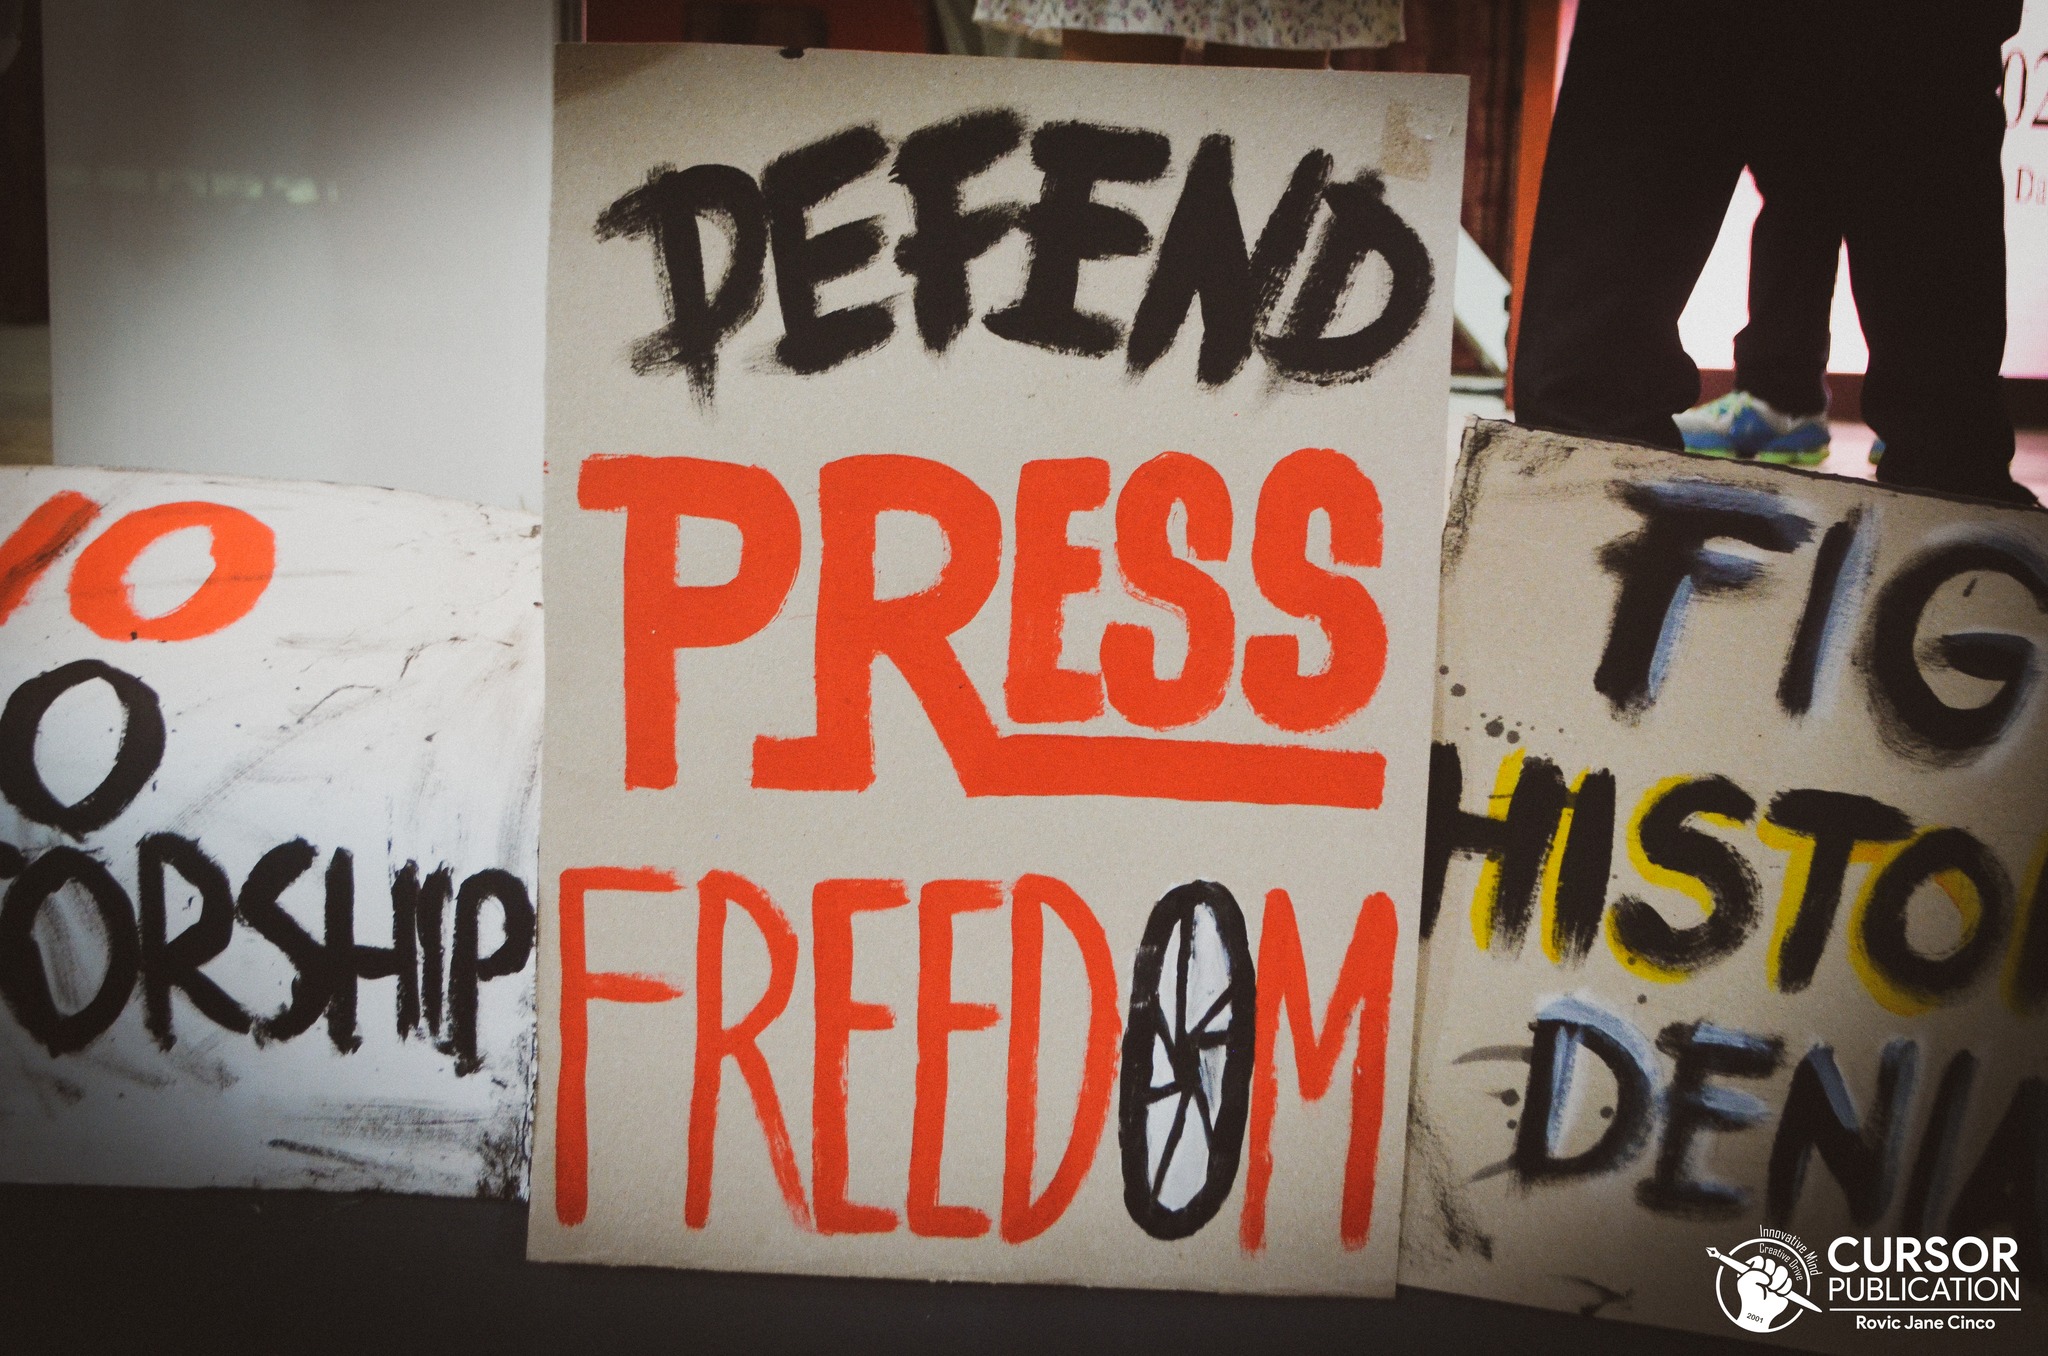 NO
O
ORSHIP
DEFEND
PRESS
FREEDOM
FIG
HISTO
DENIA
02
Da
Innovative Mind
Creative Drive
2001
CURSOR
PUBLICATION
Rovic Jane Cinco